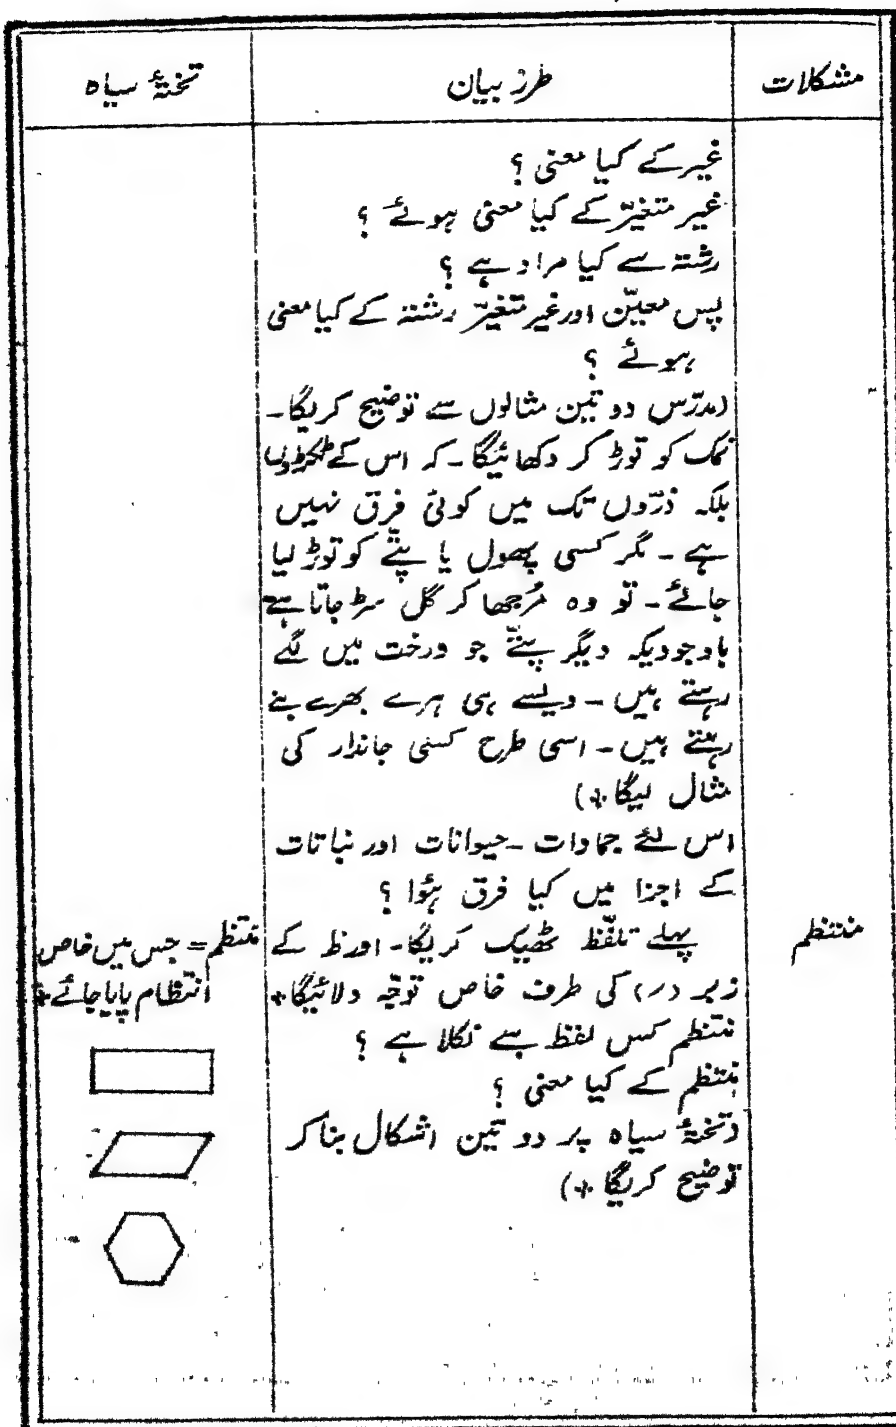 مشکلات
طرز بیان
تختۂ سیاہ
غیر کے کیا معنی ؟
غیر متغیّر کے کیا معنی ہوئے ؟
رشتہ سے کیا مراد ہے ؟
پس معیّن اور غیر متغیّر رشتہ کے کیا معنی
ہوئے ؟
(مدرّس دو تین مثالوں سے توضیح کریگا۔
نمک کو توڑ کر دکھائیگا۔ کہ اس کے ٹکڑوں
بلکہ ذرّوں تک میں کوئی فرق نہیں
ہے ۔ مگر کسی پھول یا پتّے کو توڑ لیا
جائے ۔ تو وہ مُرجھا کر گل سڑ جاتا ہے
باوجودیکہ دیگر پتّے جو درخت میں لگے
رہتے ہیں ۔ ویسے ہی ہرے بھرے بنے
رہتے ہیں ۔ اسی طرح کسی جاندار کی
مثال لیگا +)
اس لئے جمادات ۔ حیوانات اور نباتات
کے اجزا میں کیا فرق ہؤا ؟
منتظم
پہلے تلفّظ ٹھیک کریگا ۔ اور ظ کے
زیر (ـِ) کی طرف خاص توجّہ دلائیگا +
منتظم کس لفظ سے نکلا ہے ؟
منتظم کے کیا معنی ؟
(تختۂ سیاہ پر دو تین اشکال بنا کر
توضیح کریگا +)
منتظم = جس میں خاص
انتظام پایا جائے +